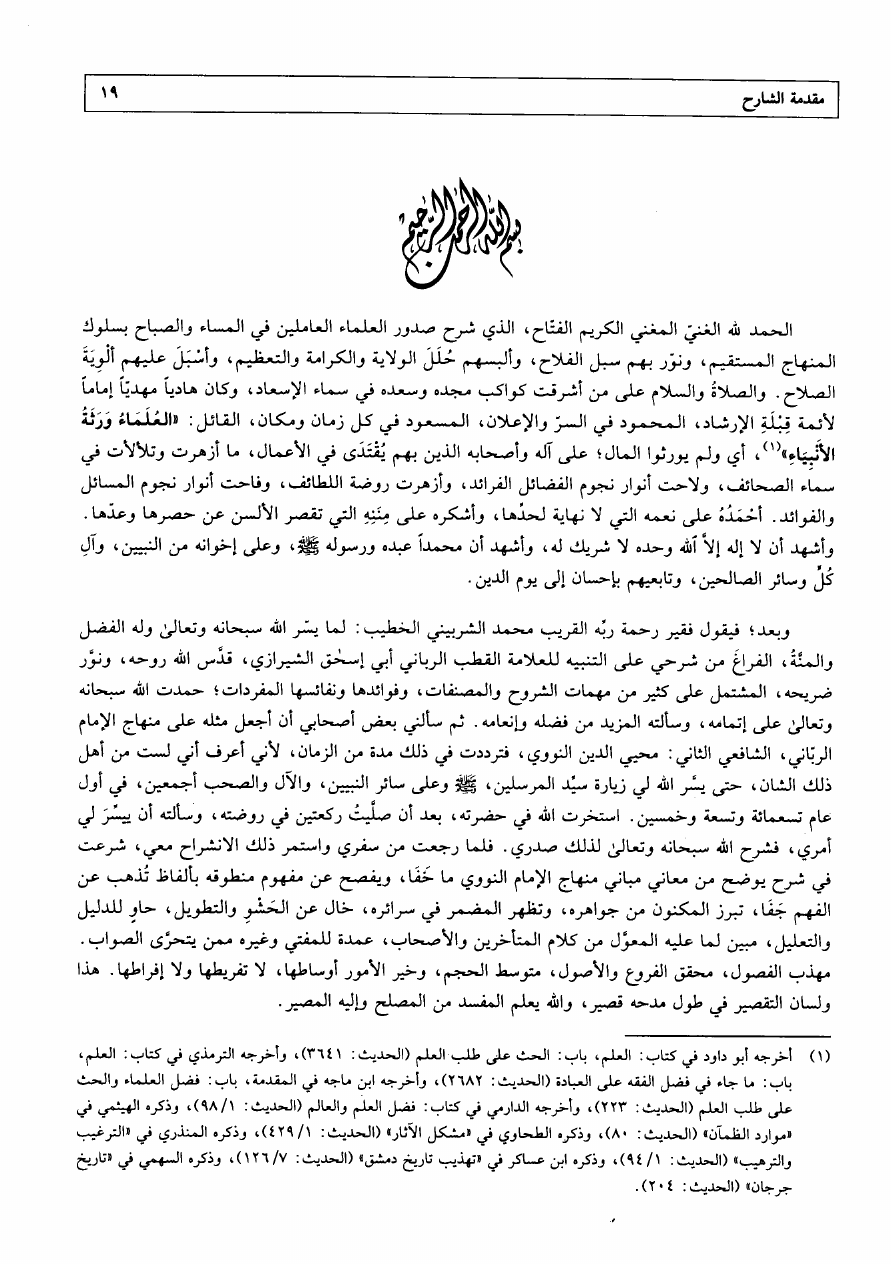 مقدمة الشارح ١٩
بسم الله الرحمن الرحيم
الحمد لله الغنيّ المغني الكريم الفتّاح، الذي شرح صدور العلماء العاملين في المساء والصباح بسلوك
المنهاج المستقيم، ونوّر بهم سبل الفلاح، وألبسهم حُلَلَ الولاية والكرامة والتعظيم، وأسْبَلَ عليهم ألْوِيَةَ
الصلاح. والصلاةُ والسلام على من أشرقت كواكب مجده وسعده في سماء الإسعاد، وكان هادياً مهديّاً إماماً
لأئمة قِبْلَةِ الإرشاد، المحمود في السرّ والإعلان، المسعود في كل زمان ومكان، القائل: «العُلَمَاءُ وَرَثَةُ
الأَنْبِيَاءِ»(١)، أي ولم يورثوا المال؛ على آله وأصحابه الذين بهم يُقْتَدَى في الأعمال، ما أزهرت وتلألأت في
سماء الصحائف، ولاحت أنوار نجوم الفضائل الفرائد، وأزهرت روضة اللطائف، وفاحت أنوار نجوم المسائل
والفوائد. أحْمَدُهُ على نعمه التي لا نهاية لحدّها، وأشكره على مِنَنِهِ التي تقصر الألسن عن حصرها وعدّها.
وأشهد أن لا إله إلاّ الله وحده لا شريك له، وأشهد أن محمداً عبده ورسوله ﷺ، وعلى إخوانه من النبيين، وآلِ
كُلٍّ وسائر الصالحين، وتابعيهم بإحسان إلى يوم الدين.
وبعد؛ فيقول فقير رحمة ربِّه القريب محمد الشربيني الخطيب: لما يسّر الله سبحانه وتعالىٰ وله الفضل
والمنَّةُ، الفراغَ من شرحي على التنبيه للعلامة القطب الرباني أبي إسحٰق الشيرازي، قدَّس الله روحه، ونوَّر
ضريحه، المشتمل على كثير من مهمات الشروح والمصنفات، وفوائدها ونفائسها المفردات؛ حمدت الله سبحانه
وتعالىٰ على إتمامه، وسألته المزيد من فضله وإنعامه. ثم سألني بعض أصحابي أن أجعل مثله على منهاج الإمام
الربّاني، الشافعي الثاني: محيي الدين النووي، فترددت في ذلك مدة من الزمان، لأني أعرف أني لست من أهل
ذلك الشان، حتى يسَّر الله لي زيارة سيِّد المرسلين، ﷺ وعلى سائر النبيين، والآل والصحب أجمعين، في أول
عام تسعمائة وتسعة وخمسين. استخرت الله في حضرته، بعد أن صلَّيتُ ركعتين في روضته، وسألته أن ييسِّرَ لي
أمري، فشرح الله سبحانه وتعالىٰ لذلك صدري. فلما رجعت من سفري واستمر ذلك الانشراح معي، شرعت
في شرح يوضح من معاني مباني منهاج الإمام النووي ما خَفَا، ويفصح عن مفهوم منطوقه بألفاظ تُذهب عن
الفهم جَفَا، تبرز المكنون من جواهره، وتظهر المضمر في سرائره، خال عن الحَشْوِ والتطويل، حاوٍ للدليل
والتعليل، مبين لما عليه المعوَّل من كلام المتأخرين والأصحاب، عمدة للمفتي وغيره ممن يتحرَّى الصواب.
مهذب الفصول، محقق الفروع والأصول، متوسط الحجم، وخير الأمور أوساطها، لا تفريطها ولا إفراطها. هذا
ولسان التقصير في طول مدحه قصير، والله يعلم المفسد من المصلح وإليه المصير.
(١) أخرجه أبو داود في كتاب: العلم، باب: الحث على طلب العلم (الحديث: ٣٦٤١)، وأخرجه الترمذي في كتاب: العلم،
باب: ما جاء في فضل الفقه على العبادة (الحديث: ٢٦٨٢)، وأخرجه ابن ماجه في المقدمة، باب: فضل العلماء والحث
على طلب العلم (الحديث: ٢٢٣)، وأخرجه الدارمي في كتاب: فضل العلم والعالم (الحديث: ٩٨/١)، وذكره الهيثمي في
«موارد الظمآن» (الحديث: ٨٠)، وذكره الطحاوي في «مشكل الآثار» (الحديث: ٤٢٩/١)، وذكره المنذري في «الترغيب
والترهيب» (الحديث: ٩٤/١)، وذكره ابن عساكر في «تهذيب تاريخ دمشق» (الحديث: ١٢٦/٧)، وذكره السهمي في «تاريخ
جرجان» (الحديث: ٢٠٤).